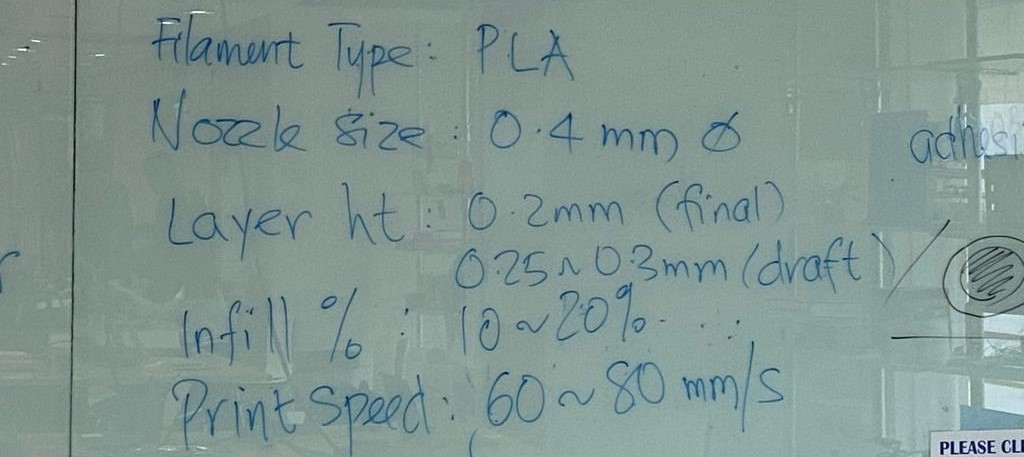 Filament Type: PLA
Nozzle size : 0.4 mm ∅
Layer ht : 0.2mm (final)
0.25~0.3mm (draft)
Infill % : 10~20%
Print speed: 60~80 mm/s
PLEASE